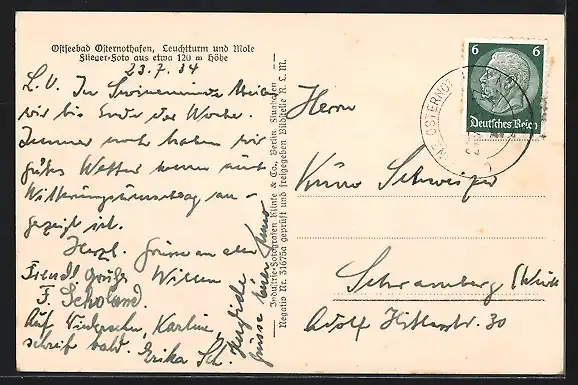 Ostseebad Osternothafen, Leuchtturm und Mole
Flieger-Foto aus etwa 120 m Höhe
23.7.34
L. V. In Swinemünde
wir bis Ende der Woche.
Immer noch haben wir
gutes Wetter wenn auch
Witterungsumschlag an-
gezeigt ist.
Herzl. Grüsse an alle
Freudl. Grüße Willen
F. Scholand.
Auf Wiedersehn, Karline,
schreib bald. Erika Sch.
Herzliche
Grüsse Euer
Industrie-Fotografen Klinke & Co., Berlin, Flughafen
Negativ Nr. 31675a geprüft und freigegeben Bildstelle R. L. M.
6 6
Deutsches Reich
OSTERNO
Herrn
Schweizer
Schramberg (Württ
Adolf Hitlerstr. 30